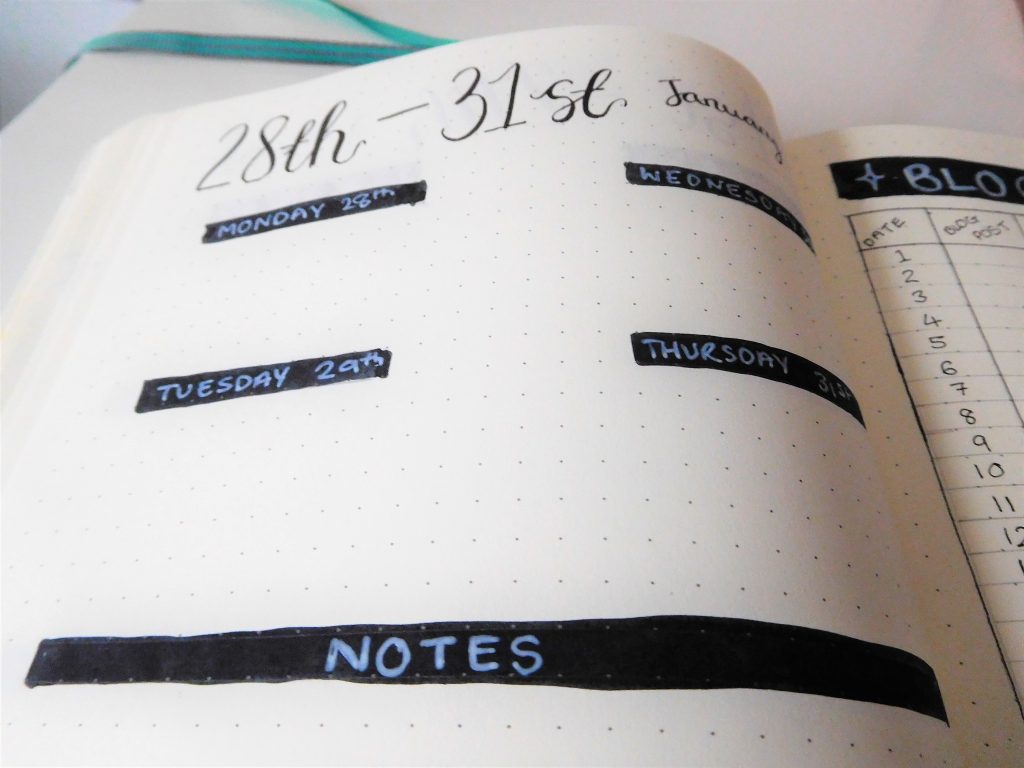 28th - 31st January
MONDAY 28th
WEDNESDAY
TUESDAY 29th
THURSDAY 31st
NOTES
BLOG
DATE BLOG POST
1
2
3
4
5
6
7
8
9
10
11
12